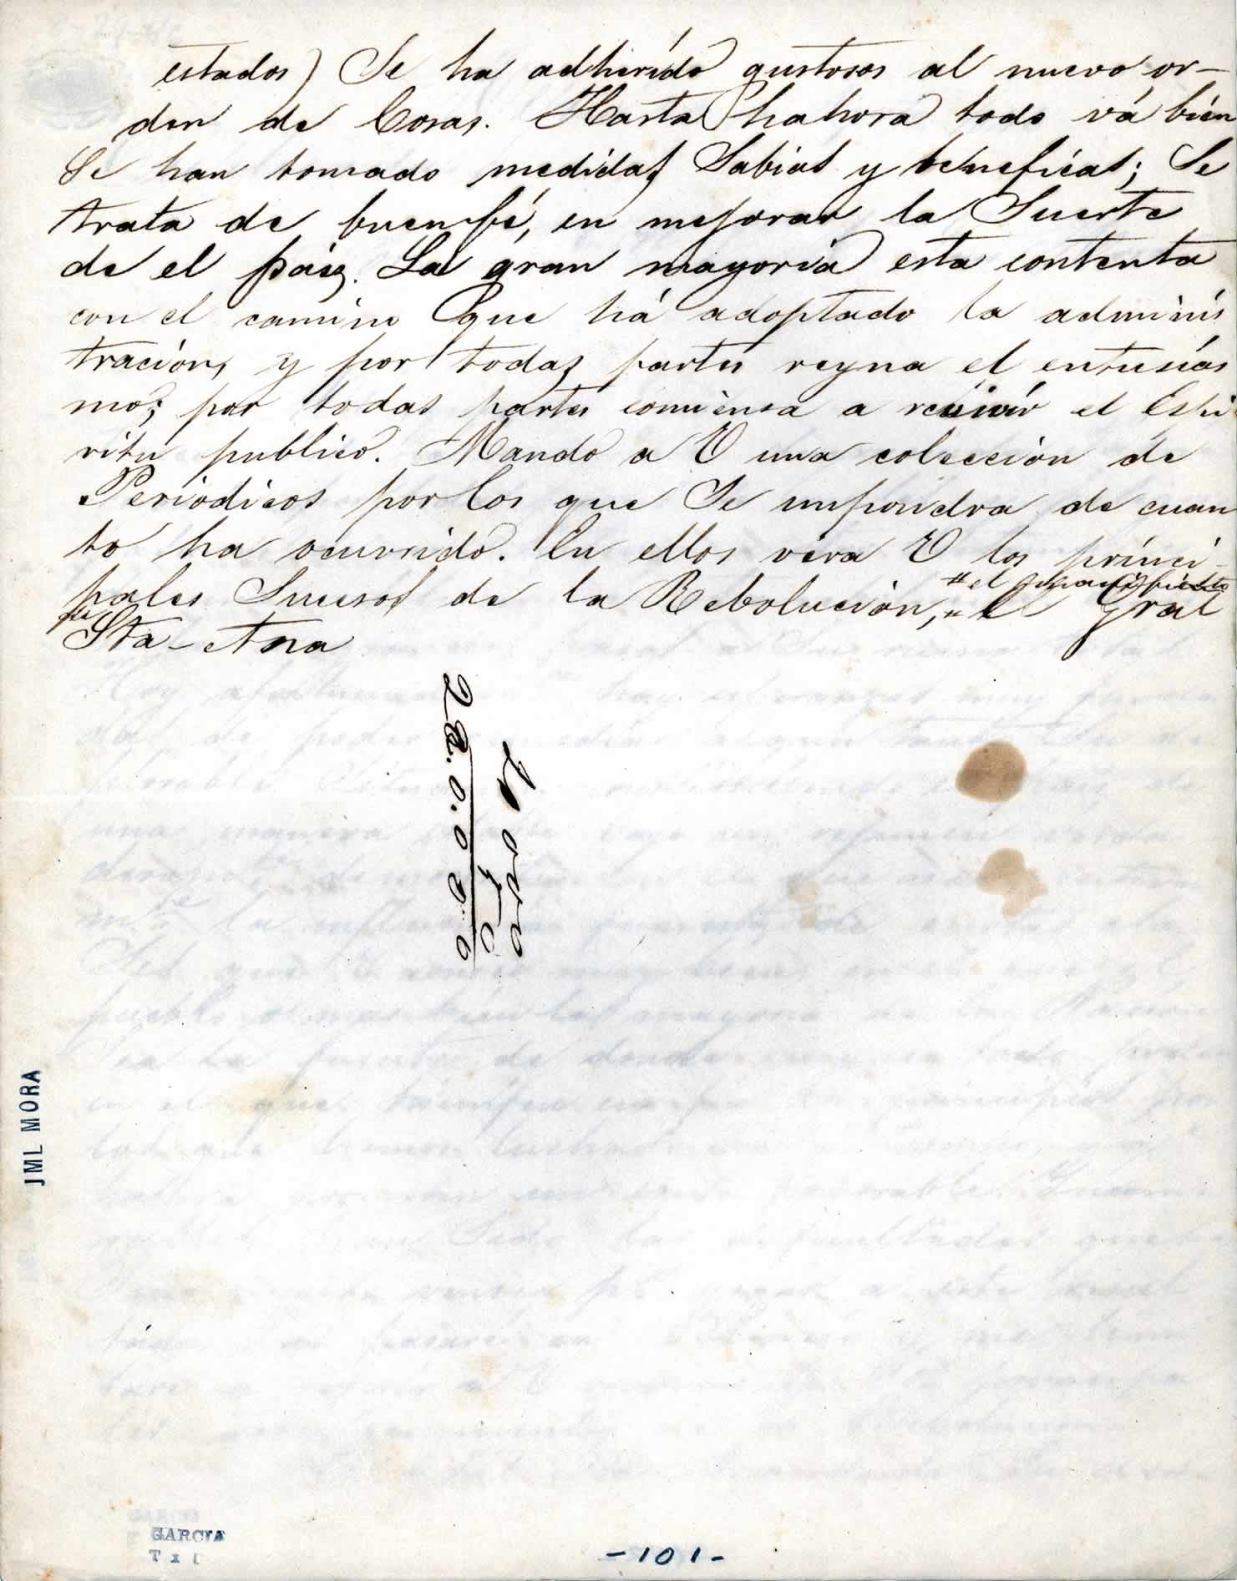 estados) Se ha adherido gustosos al nuevo or-
den de Cosas. Hasta hahora todo vá bién
Se han tomado medidas Sabias y beneficas; Se
trata de buen fé, en mejorar la Suerte
de el páiz. La gran mayoria esta contenta
con el camino que há adoptado la adminis
tración, y por todas partes reyna el entusias
mo; por todas partes comiensa a revivir el Espi
ritu publico. Mando a V una colección de
Periodicos por los que Se impondra de cuan
to ha ocurrido. En ellos vera V los princi-
pales Sucesos de la Rebolución,
"el
Gral
Sta-Anna
28.0.000
JML MORA
GARCIA
-101-